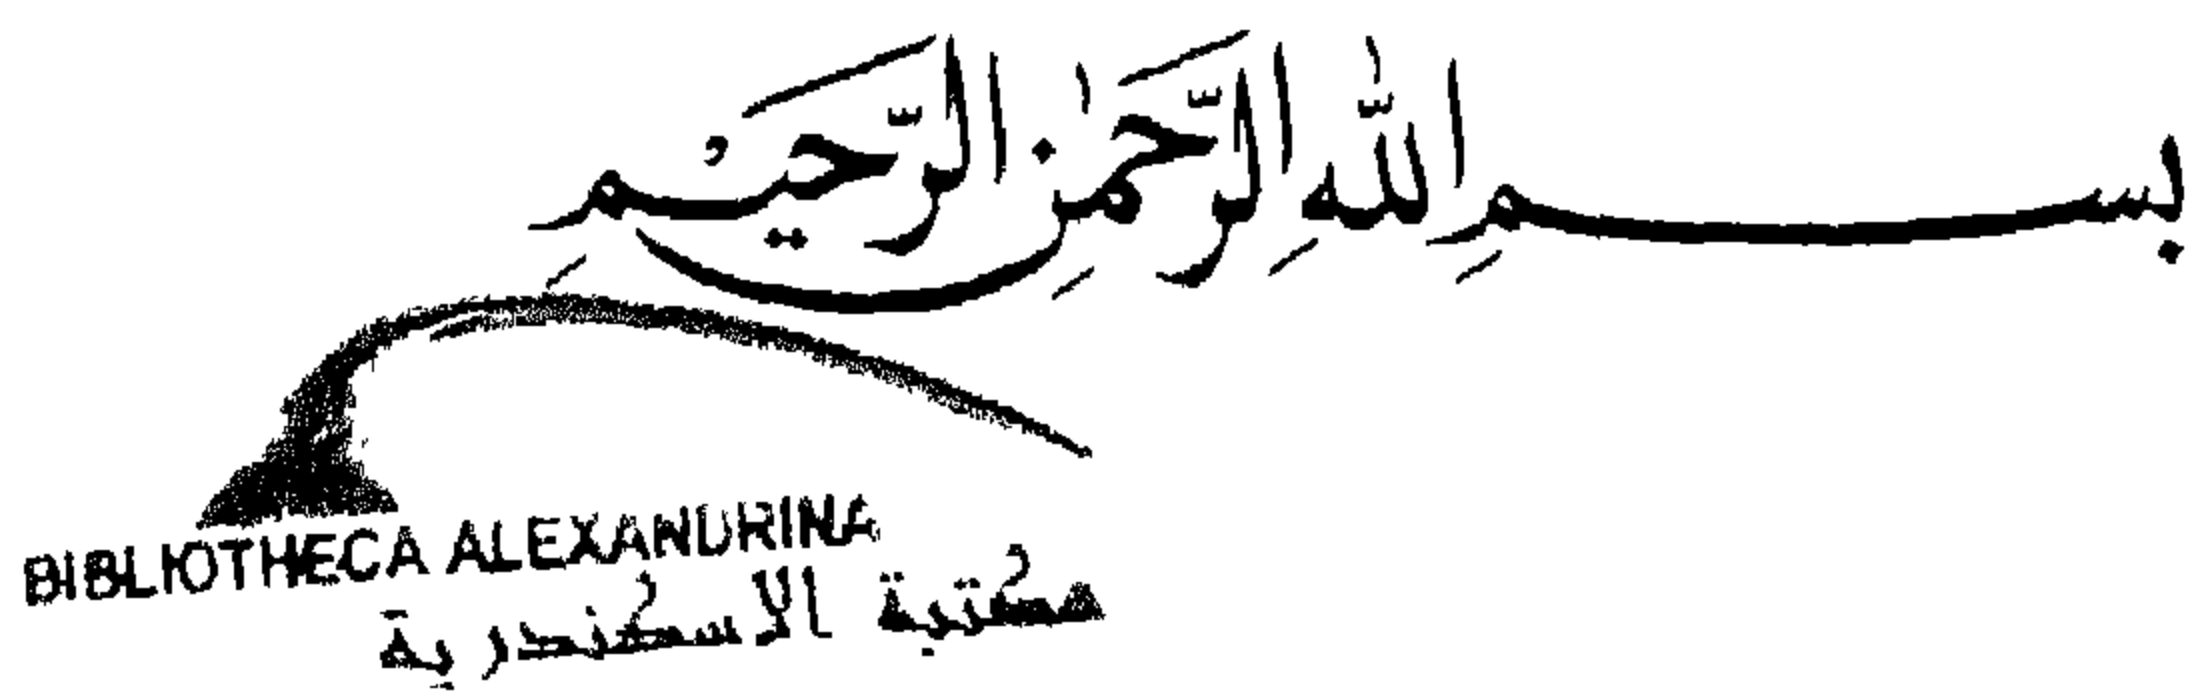 بِسْمِ اللّٰهِ الرَّحْمٰنِ الرَّحِيْمِ
BIBLIOTHECA ALEXANDRINA
مكتبة الاسكندرية